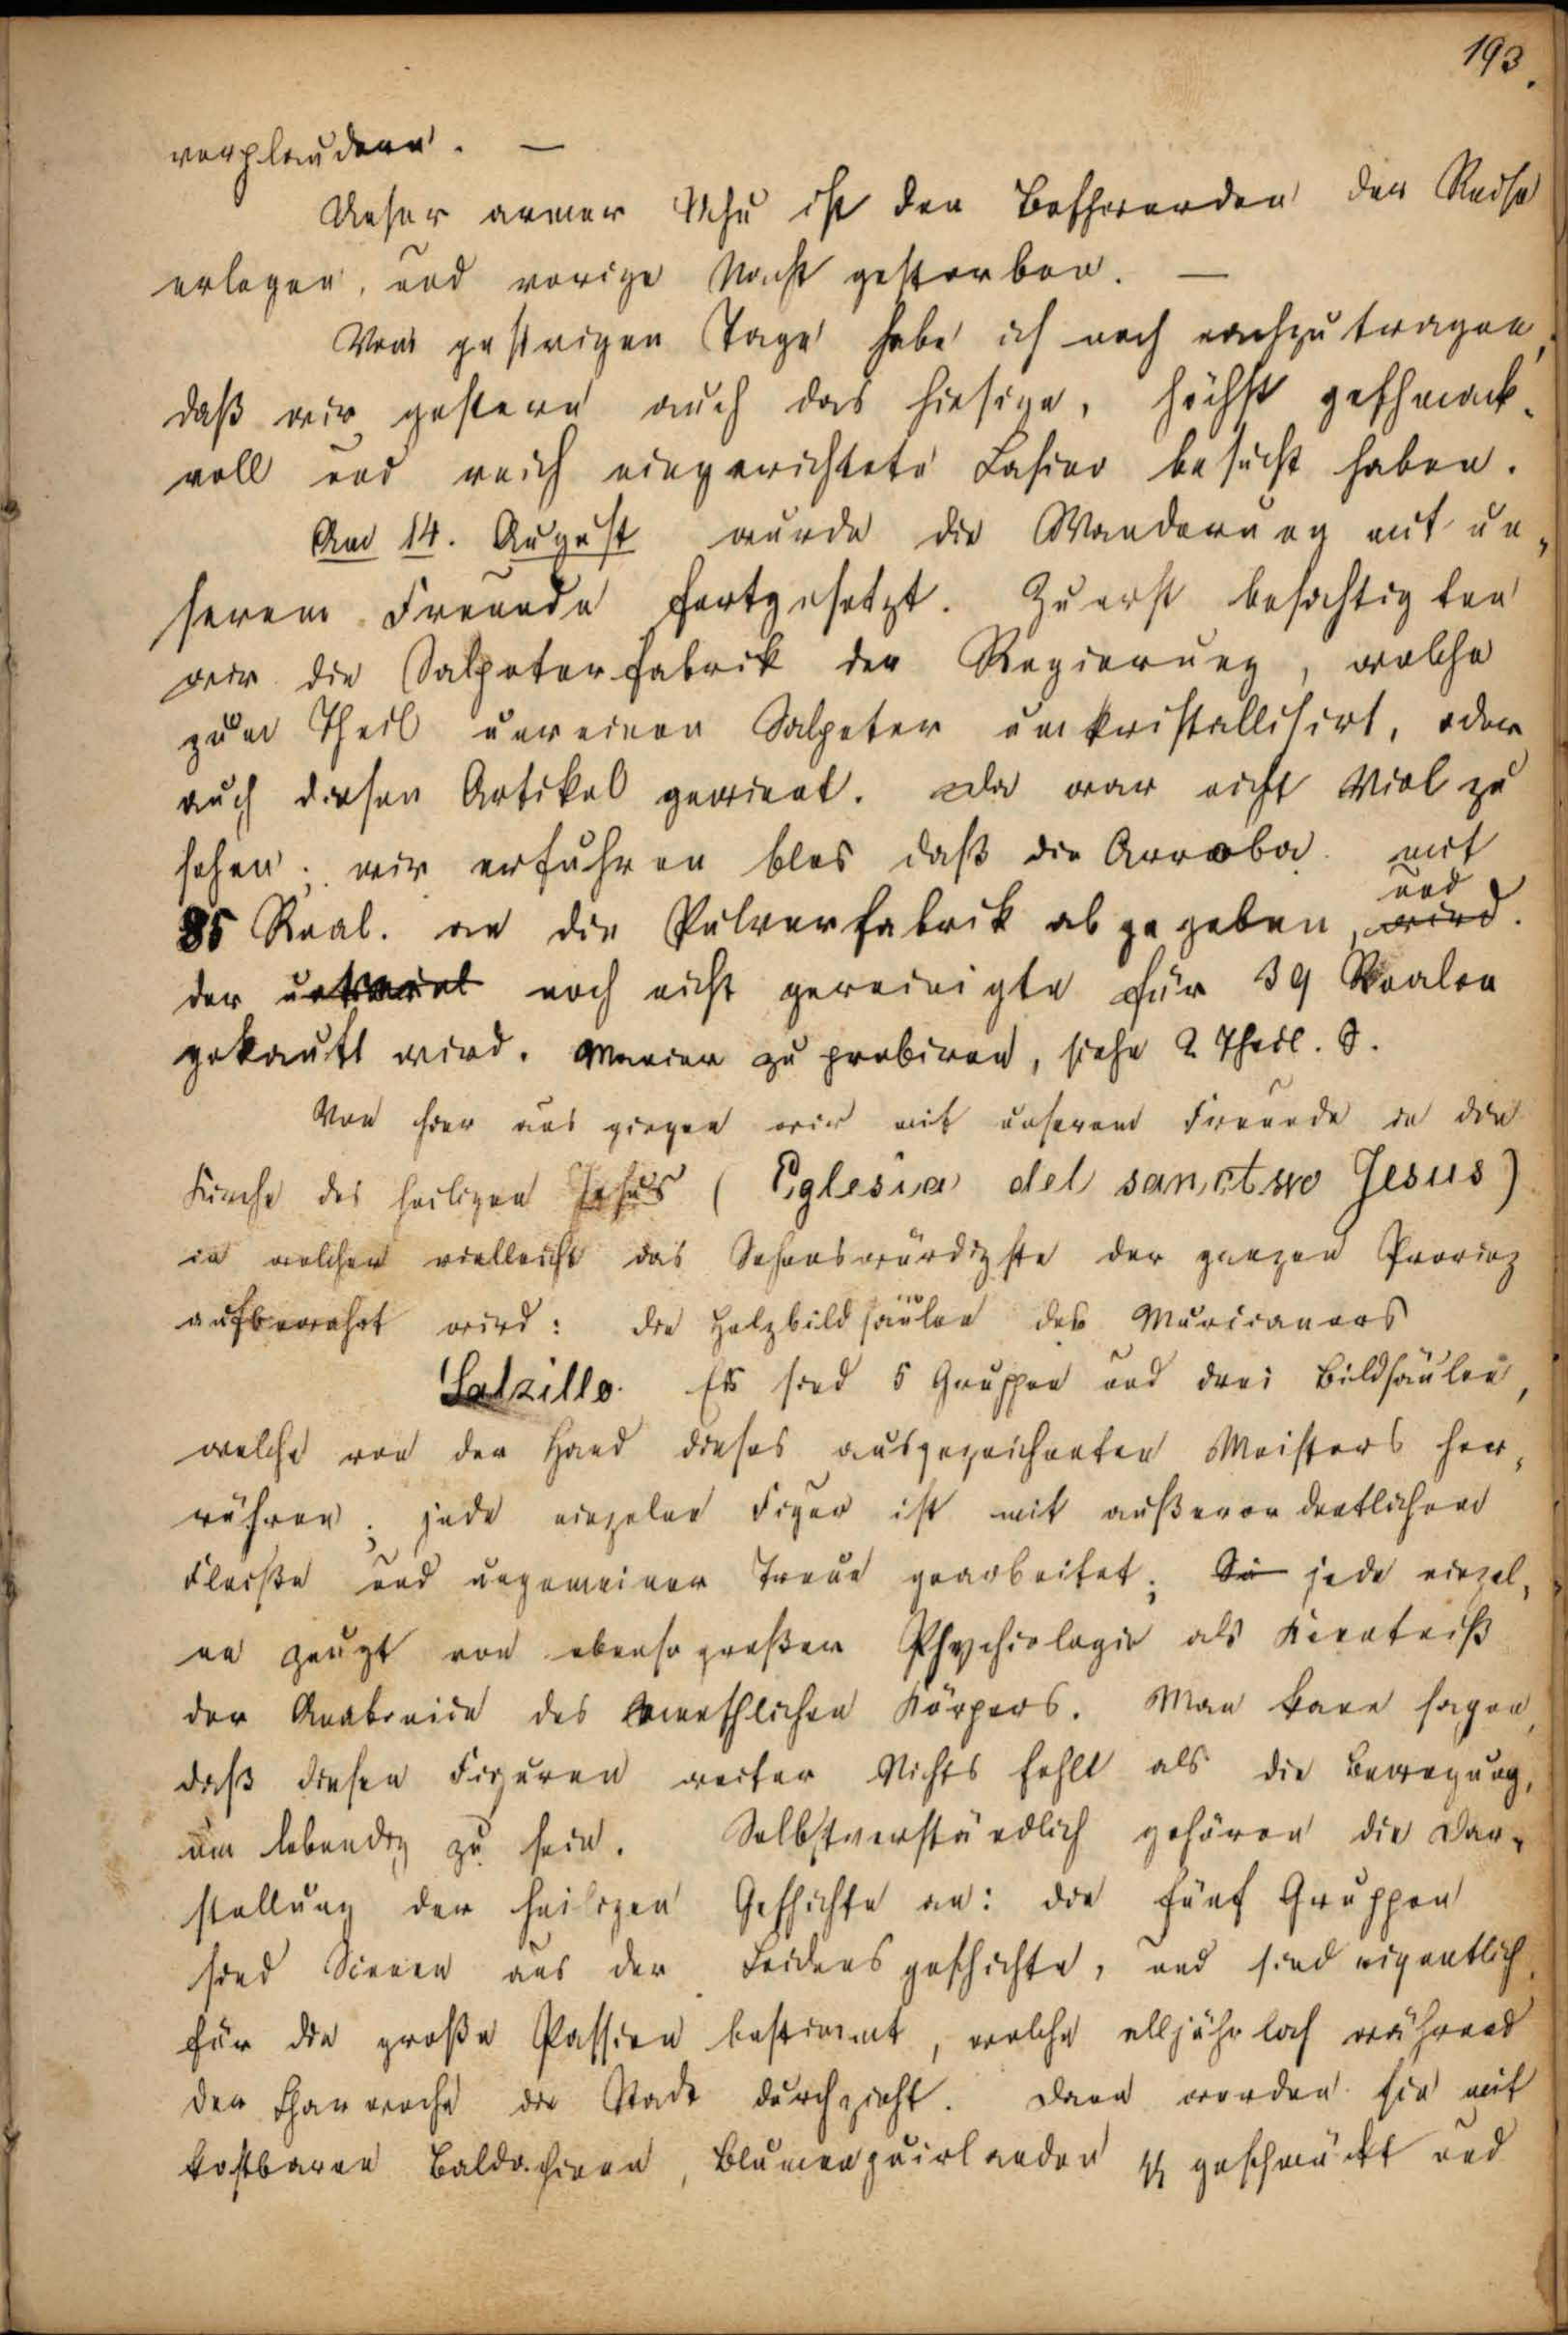 193.
verplaudern. —
Unser armer Uhu ist den Beschwerden der Reise
erlegen, und vorige Nacht gestorben. —
Vom gestrigen Tage habe ich noch nachzutragen,
daß wir gestern auch das hiesige, höchst geschmack-
voll und reich eingerichtete Casino besucht haben.
Am 14. August wurde die Wanderung mit un-
serem Freunde fortgesetzt. Zuerst besichtigten
wir die Salpeterfabrik der Regierung, welche
zum Theil unreinen Salpeter umkristallisirt, oder
auch diesen Artikel gewinnt. Da war nicht Viel zu
sehen; wir erfuhren blos daß die Arroba mit
und
85 Real. an die Pulverfabrik abgegeben, wird.
der noch nicht gereinigte für 39 Realen
gekauft wird. Manier zu probiren, siehe 2 Theil. S.
Von hier aus gingen wir mit unserem Freunde in die
Kirche des heiligen Jesus (Eglesia del sanctuo Jesus)
in welcher vielleicht das Sehenswürdigste der ganzen Provinz
aufbewahrt wird: die Holzbildsäulen des Murcianers
Salzillo. Es sind 5 Gruppen und drei Bildsäulen,
welche von der Hand dieses ausgezeichneten Meisters her-
rühren; jede einzelne Figur ist mit außerordentlichem
Fleiße und ungemeiner Treue gearbeitet; Si jede einzel-
ne zeugt von ebenso großer Phychiologie als Kenntniß
der Anatomie des menschlichen Körpers. Man kann sagen,
daß diesen Figuren weiter Nichts fehlt als die Bewegung,
um lebendig zu sein. Selbstverständlich gehören die Dar-
stellung der heiligen Geschichte an: die fünf Gruppen
sind Scenen aus der Leidensgeschichte, und sind eigentlich
für die große Passion bestimmt, welche alljährlich während
der Charwoche die Stadt durchzieht. Dann werden sie mit
kostbaren Baldachinen, Blumenguirlanden geschmückt und